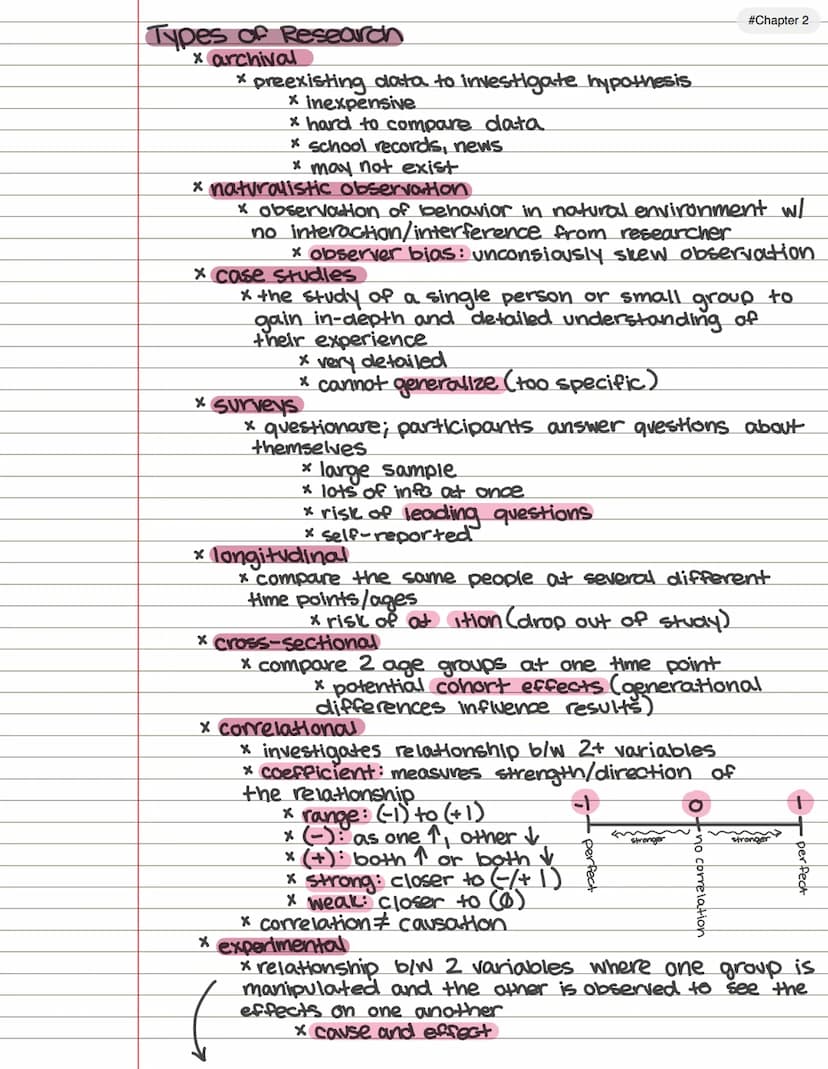 #Chapter 2
Types of Research
x archival
x preexisting data to investigate hypothesis
x inexpensive
x hard to compare data
x school records, news
x may not exist
x naturalistic observation
x observation of behavior in natural environment w/
no interaction/interference from researcher
x observer bias: unconsiously skew observation
x case studies
x the study of a single person or small group to
gain in-depth and detailed understanding of
their experience
x very detailed
x cannot generalize (too specific)
x surveys
x questionare; participants answer questions about
themselves
x large sample
x lots of info at once
x risk of leading questions
x self-reported
x longitudinal
x compare the same people at several different
time points/ages
x risk of at ition (drop out of study)
x cross-sectional
x compare 2 age groups at one time point
x potential cohort effects (generational
differences influence results)
x correlational
x investigates relationship b/w 2+ variables
x coefficient: measures strength/direction of
the relationship
x range: (-1) to (+1)
x (-): as one ↑, other ↓
x (+): both ↑ or both ↓
x strong: closer to (-/+ 1)
x weak: closer to (0)
x correlation ≠ causation
-1 0 1
stronger stronger
perfect
no correlation
perfect
x experimental
x relationship b/w 2 variables where one group is
manipulated and the other is observed to see the
effects on one another
x cause and effect